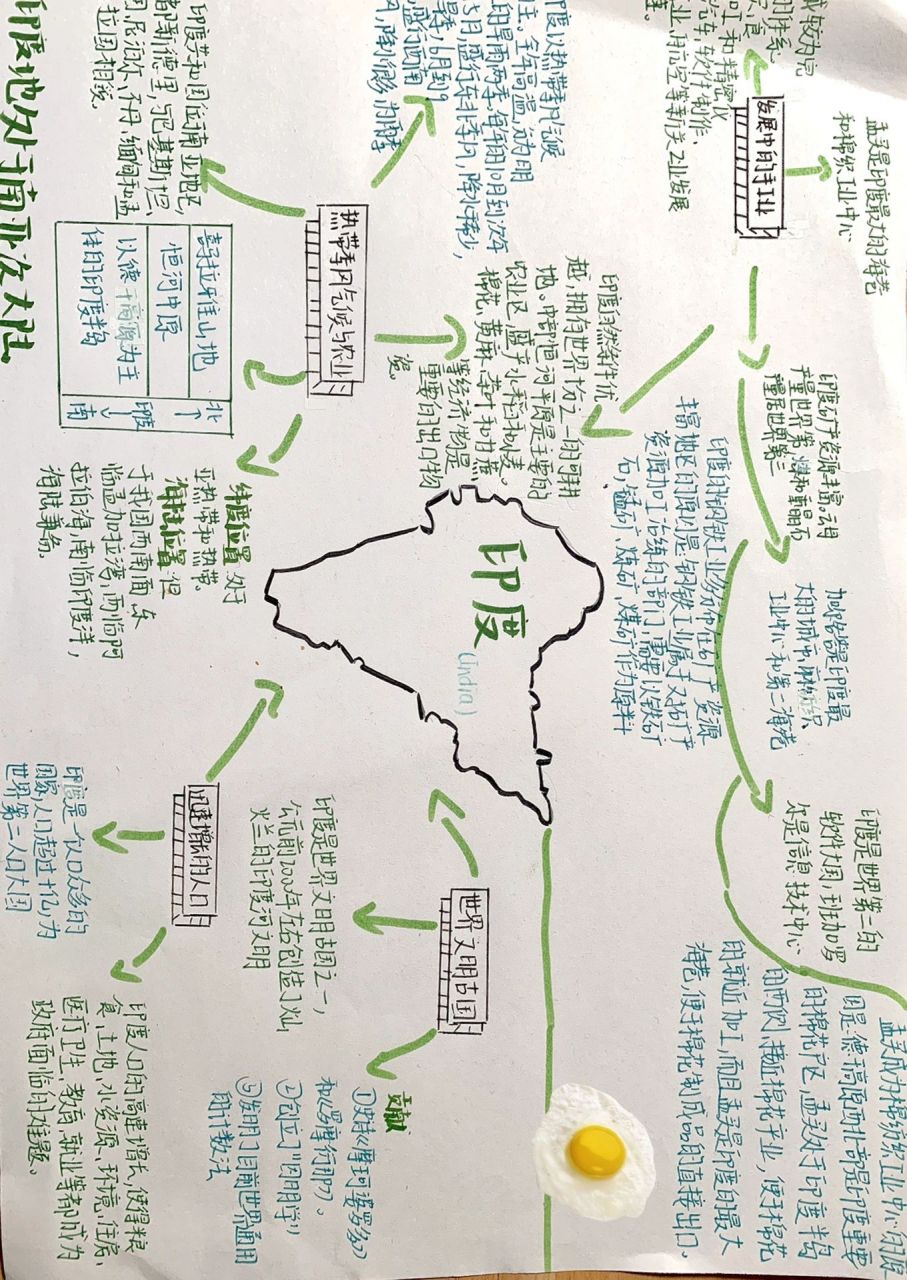 印度地处于南亚次大陆
印度共和国位于南亚地区,
都新德里,与巴基斯坦、
国、尼泊尔、不丹、缅甸和孟
拉国相接。
印度以热带季风气候
主。全年高温,分为明
的旱雨两季,每年的10月到次年
5月盛行东北季风,降水稀少,
6月到9
盛行西南
风,降水很多,为雨季
发展中的手工业
孟买是印度最大的海港
和棉纺织工业中心
汽车、软件制作、
航空等新兴工业发展
热带季风气候与农业
喜马拉雅山地
恒河中原
以德干高原为主
体的印度半岛
北
↑
印度
↓
南
印度自然条件优
越,拥有世界1/10的可耕
地。中部恒河平原是主要的
农业区,盛产水稻和小麦。
棉花、黄麻、茶叶和甘蔗
等经济作物是
重要的出口物
资。
纬度位置:处于
亚热带和热带。
海陆位置:但
于我国西南面,东
临孟加拉湾,西临阿
拉伯海,南临印度洋,
海陆兼备。
印度矿产资源丰富。云母
产量世界第一,煤和重晶石
产量居世界第三
印度的钢铁工业分布在矿产资源
丰富地区的原则是钢铁工业属于对矿产
资源加工冶炼的部门,需要以铁矿
石、锰矿、煤矿作为原料
加尔各答是印度最
大的城市,麻纺织
工业中心和第二海港
印度
(india)
印度是世界第二的
软件大国,班加罗
尔是信息技术中心
孟买成为棉纺织工业中心的原
因是:德干高原西北部是印度重要
的棉花产区,孟买处于印度半岛
的西侧,接近棉花产业,便于棉花
的就近加工,而且孟买是印度的最大
海港,便于棉花制成品的直接出口。
迅速增长的人口
印度是一个人口众多的
国家,人口超过十亿,为
世界第二人口大国
印度人口的高速增长,使得粮
食、土地、水资源、环境、住房、
医疗卫生、教育、就业等都成为
政府面临的难题。
世界文明古国
印度是世界文明古国之一,
公元前2000年左右创造了灿
烂的印度河文明
贡献
①史诗《摩诃婆罗多》
和《罗摩衍那》。
②创立了因明学
③发明了目前世界通用
的计数法